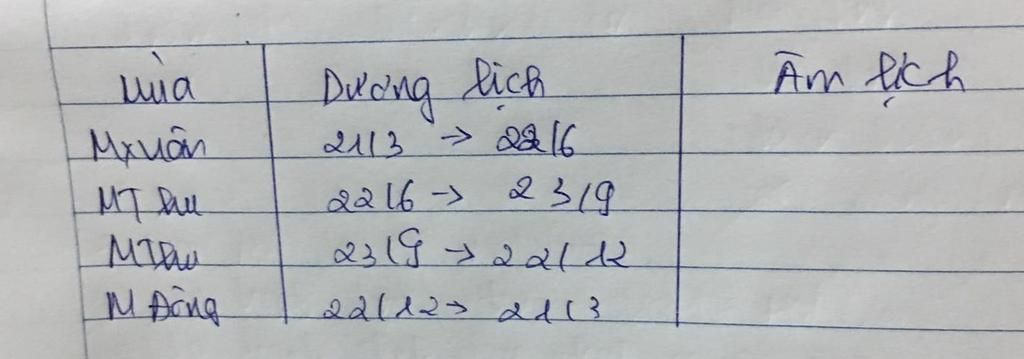 Mùa Dương lịch Âm lịch
Mxuân 21/3 → 22/6
MT thu 22/6 → 23/9
MT thu 23/9 → 22/12
M Đông 22/12 → 21/3